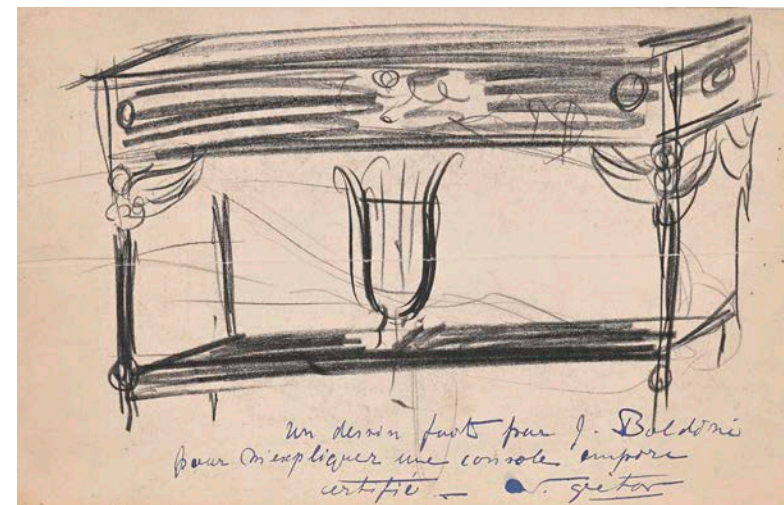 un dessin fait par J. Boldini
pour m'expliquer une console empire
certifié — W. Gretor